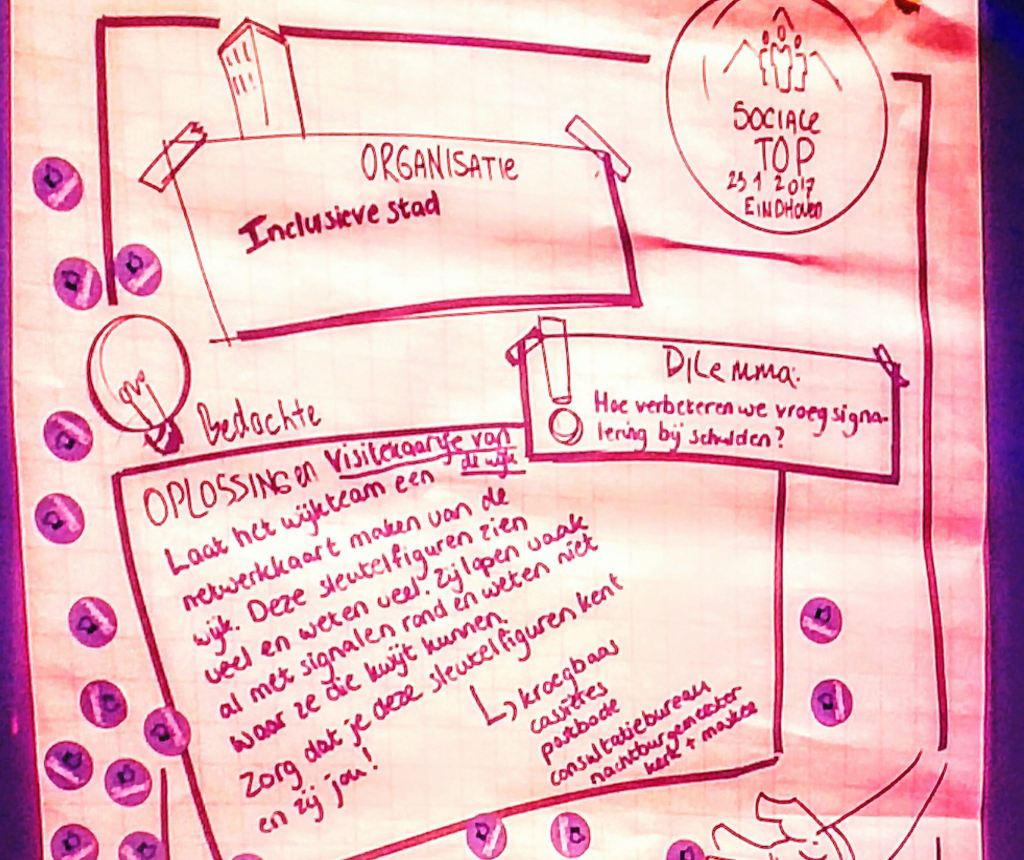 SOCIALE
TOP
23 1 2017
EINDHOVEN
ORGANISATIE
Inclusieve stad
DILEMMA:
Hoe verbeteren we vroegsigna-
lering bij schulden?
Bedachte
OPLOSSINGEN Visitekaartje van
de wijk
Laat het wijkteam een
netwerkkaart maken van de
wijk. Deze sleutelfiguren zien
veel en weten veel. Zij lopen vaak
al met signalen rond en weten niet
waar ze die kwijt kunnen.
Zorg dat je deze sleutelfiguren kent
en zij jou!
kroegbaas
cassières
postbode
consultatiebureau
nachtburgemeester
kerk + moskee